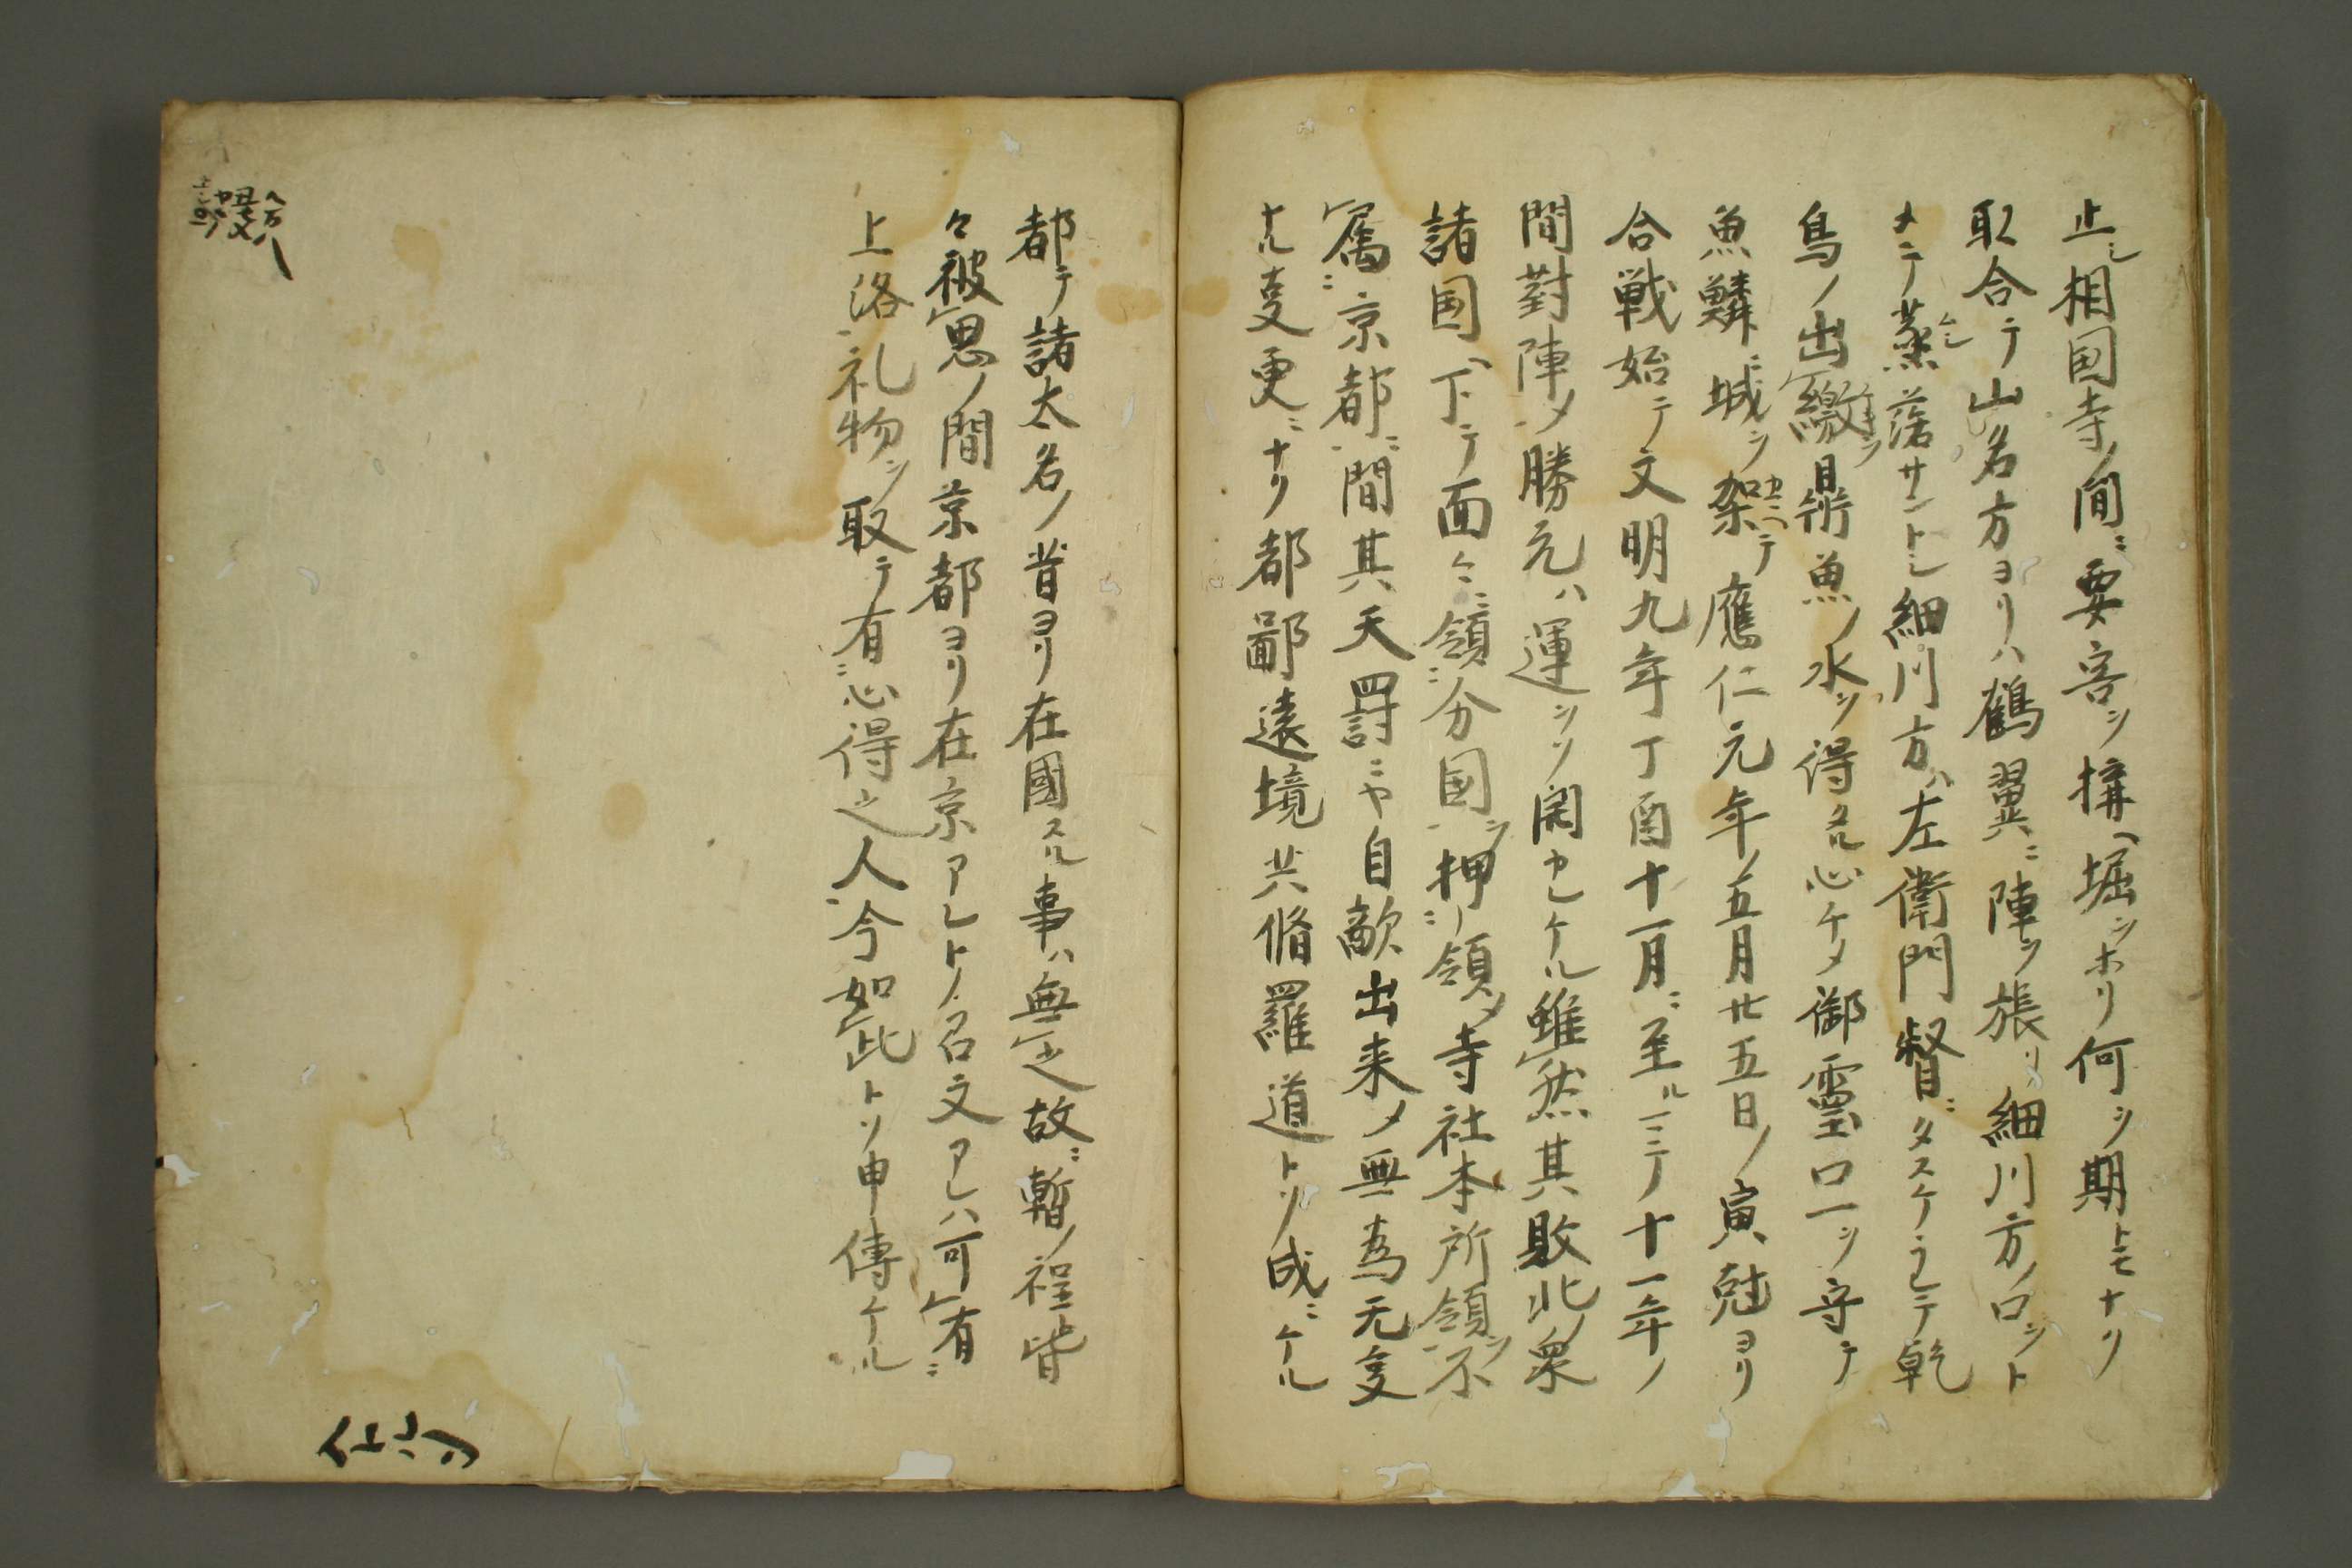 止シ相国寺ノ間ニ要害ヲ構ヘ堀ヲホリ何ヲ期トモナリ
取合テ山名方ヨリハ鶴翼ニ陣ヲ張リ細川方ノ口ヲト
メテ蒸落サントシ細川方ハ左衛門督ニタスケラレテ乾
鳥ノ出繳ヲ魚ノ水ヲ得タル心ケメ御霊口一ツ守テ
魚鱗ニ城ヲ架テ應仁元年ノ五月廿五日ノ寅尅ヨリ
合戦始テ文明九年丁酉十一月ニ至ルニテ十一年ノ
間對陣メ勝元ハ運ヲソ開カレケル雖然其敗北ノ衆
諸国ヘ下テ面々ニ領分国ヲ押領メ寺社本所領ヲ不
属京都ニ間其天罸ニヤ自敵出来メ無為无㕝
ナル㕝更ニナリ都鄙遠境共脩羅道トソ成ニケル
都テ諸太名ノ昔ヨリ在國スル事ハ無之故ニ暫ノ程皆
々被思ノ間京都ヨリ在京アレトノ召文アレハ可有
上洛礼物ヲ取テ有心得之人今如此トソ申傳ケル